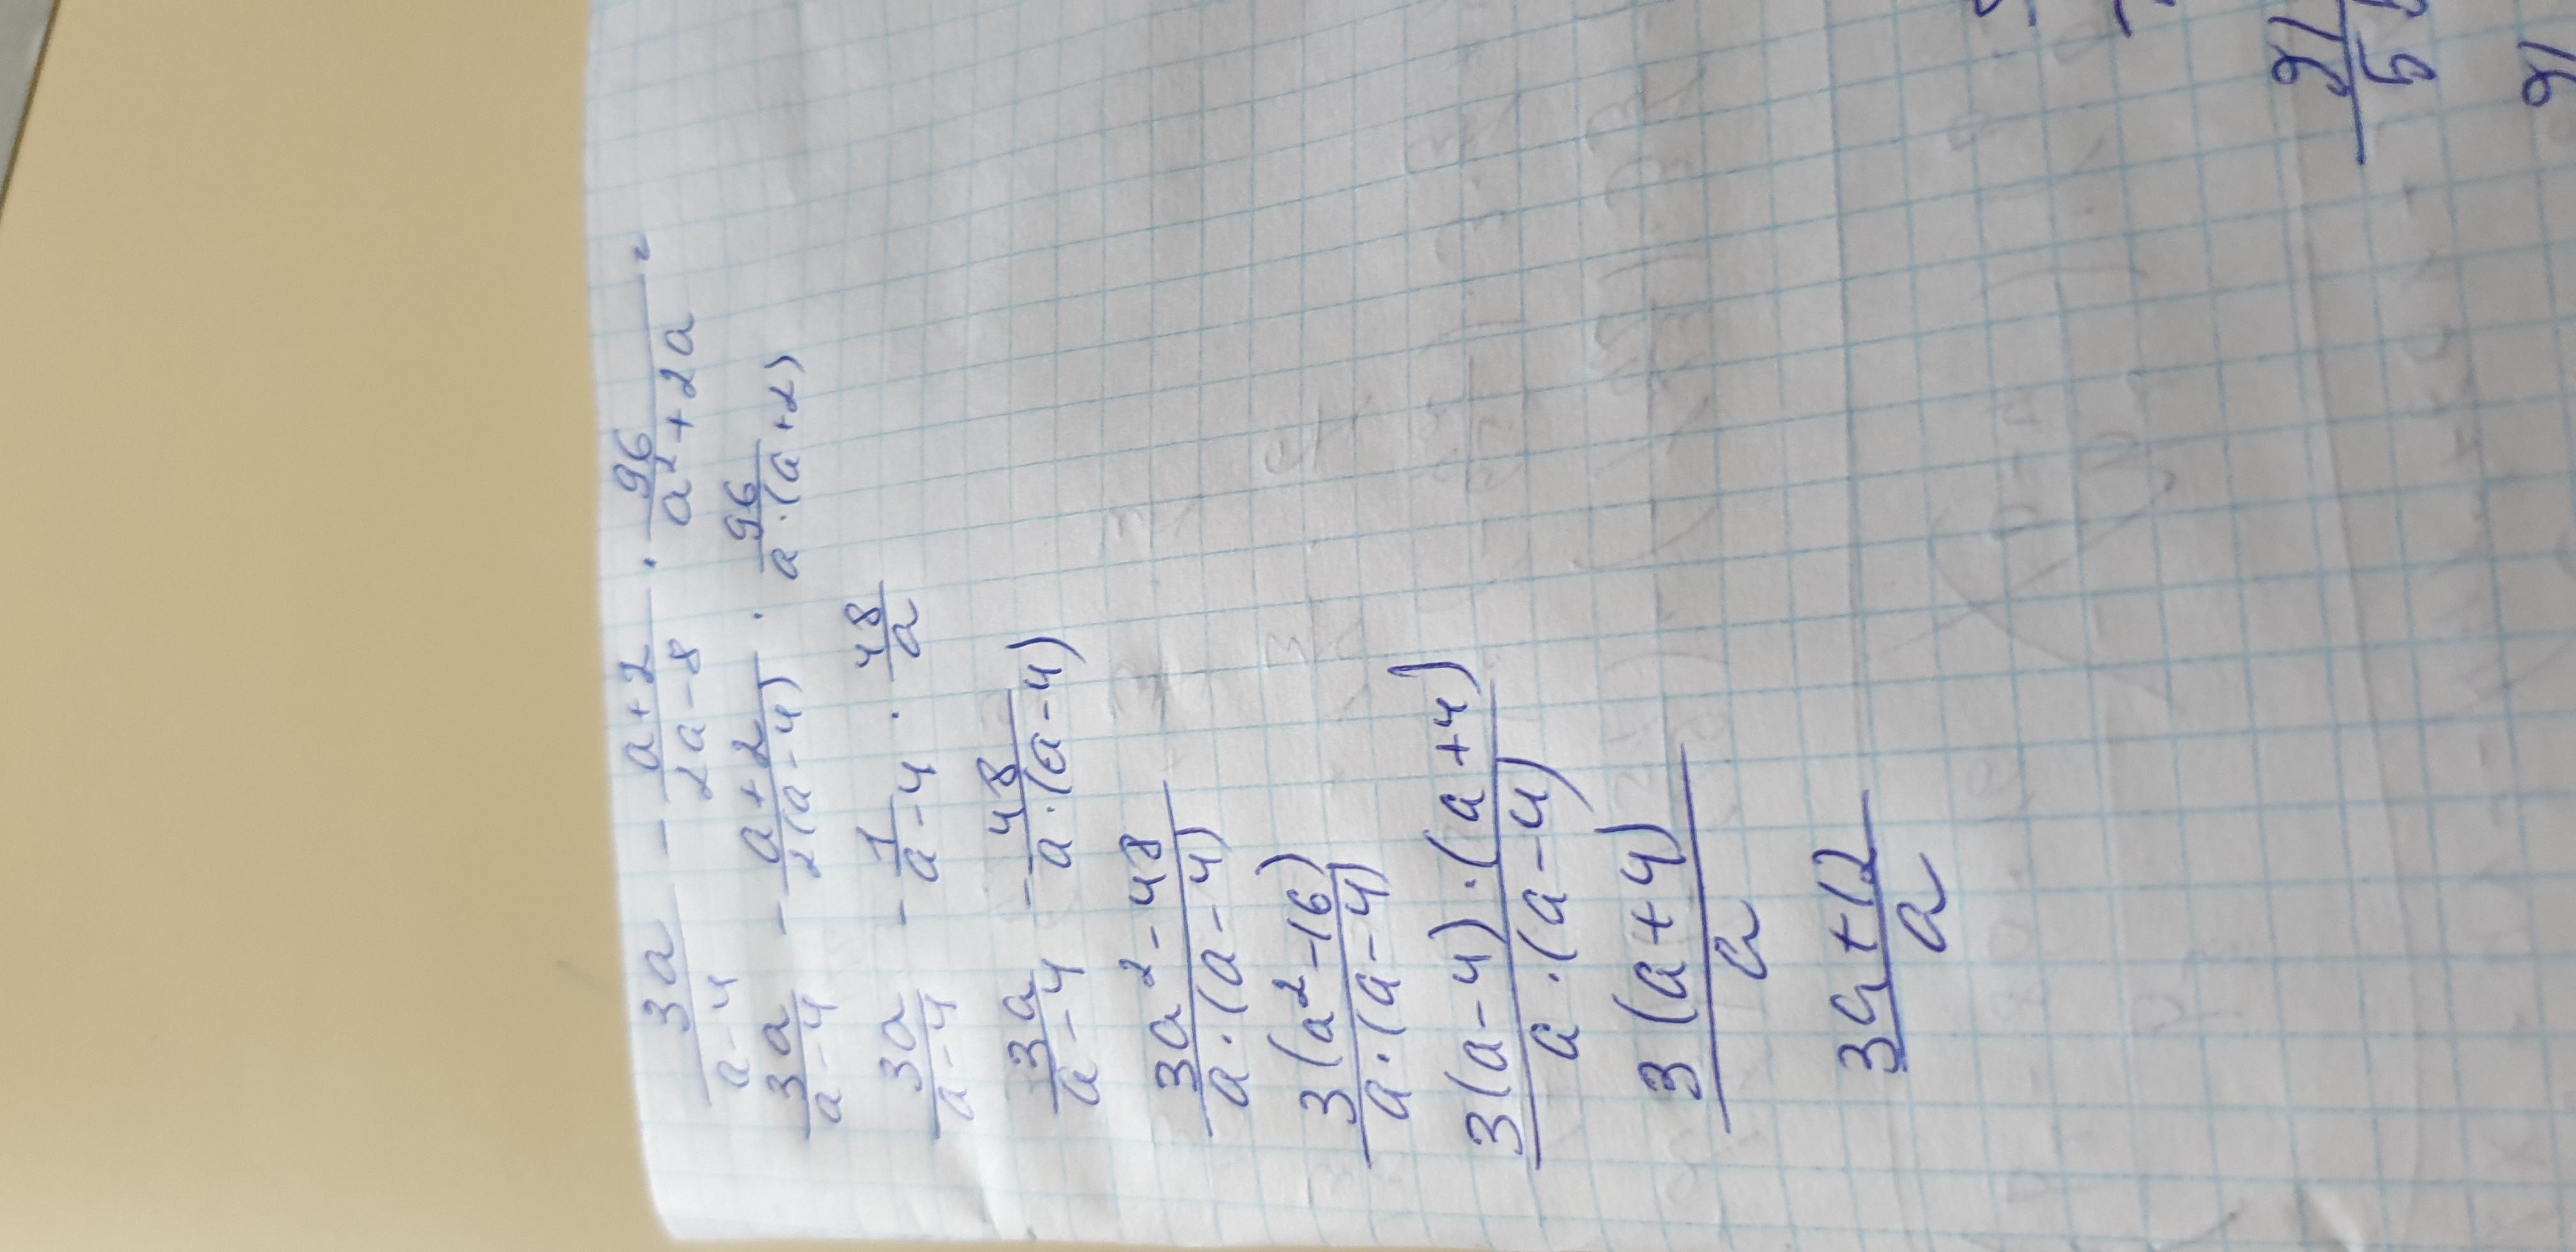 3a/(a-4) - (a+2)/(2a-8) · 96/(a²+2a) =
3a/(a-4) - (a+2)/(2(a-4)) · 96/(a·(a+2))
3a/(a-4) - 1/(a-4) · 48/a
3a/(a-4) - 48/(a·(a-4))
(3a²-48)/(a·(a-4))
3(a²-16)/(a·(a-4))
3(a-4)·(a+4)/(a·(a-4))
3(a+4)/a
(3a+12)/a